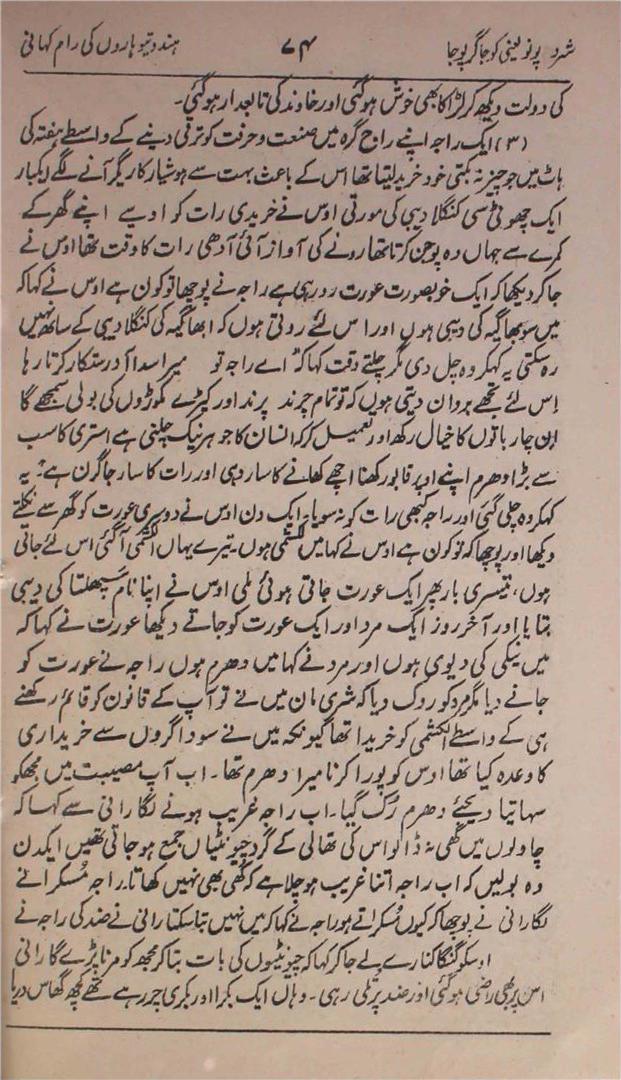 شرد پونو یعنی کوجاگر پوجا ۷۴ ہندو تیوہاروں کی رام کہانی
کی دولت دیکھ کر لڑاکا بھی خوش ہوگئی اور خاوند کی تابعدار ہوگئی۔
(۳) ایک راجہ اپنے راج گرہ میں صنعت و حرفت کو ترقی دینے کے واسطے ہفتہ کی
ہاٹ میں جو چیز نہ بکتی خود خرید لیتا تھا اس کے باعث بہت سے ہوشیار کاریگر آنے لگے ایکبار
ایک چھوٹی سی کنگلا دیبی کی مورتی اوس نے خریدی رات کو اوسے اپنے گھر کے
کمرے سے جہاں وہ پوجن کرتا تھا رونے کی آواز آئی آدھی رات کا وقت تھا اوس نے
جاکر دیکھا کہ ایک خوبصورت عورت رو رہی ہے راجہ نے پوچھا تو کون ہے اوس نے کہا کہ
میں سوبھاگیہ کی دیبی ہوں اور اس لئے روتی ہوں کہ ابھاگیہ کی کنگلا دیبی کے ساتھ نہیں
رہ سکتی یہ کہکر وہ چل دی مگر چلتے وقت کہا کہ اے راجہ تو میرا سدا آدر ستکار کرتا رہا
اس لئے تجھے بروان دیتی ہوں کہ تو تمام چرند پرند اور کیڑے مکوڑوں کی بولی سمجھے گا
ان چار باتوں کا خیال رکھ اور تعمیل کر کہ انسان کا جوہر نیک چلنی ہے استری کا سب
سے بڑا دھرم اپنے اوپر قابو رکھنا اچھے کھانے کا سار دہی اور رات کا سار جاگرن ہے: یہ
کہکر وہ چلی گئی اور راجہ کبھی رات کو نہ سویا۔ ایک دن اوس نے دوسری عورت کو گھر سے نکلتے
دیکھا اور پوچھا کہ تو کون ہے اوس نے کہا میں لکشمی ہوں۔ تیرے یہاں الکشمی آگئی اس لئے جاتی
ہوں، تیسری بار پھر ایک عورت جاتی ہوئی ملی اوس نے اپنا نام سپھلتا کی دیبی
بتایا اور آخر روز ایک مرد اور ایک عورت کو جاتے دیکھا عورت نے کہا کہ
میں نیکی کی دیوی ہوں اور مرد نے کہا میں دھرم ہوں راجہ نے عورت کو
جانے دیا مگر مرد کو روک دیا کہ شریمان میں نے تو آپ کے قانون کو قائم رکھنے
ہی کے واسطے الکشمی کو خریدا تھا کیونکہ میں نے سوداگروں سے خریداری
کا وعدہ کیا تھا اوس کو پورا کرنا میرا دھرم تھا۔ اب آپ مصیبت میں مجھکو
سہائتا دیجئے دھرم رک گیا۔ اب راجہ غریب ہونے لگا رانی سے کہا کہ
چاولوں میں گھی نہ ڈالو اس کی تھالی کے گرد چونٹیاں جمع ہو جاتی تھیں ایکدن
وہ بولیں کہ اب راجہ اتنا غریب ہو چلا ہے کہ گھی بھی نہیں کھاتا۔ راجہ مسکرانے
لگا رانی نے پوچھا کہ کیوں مسکراتے ہو راجہ نے کہا کہ میں نہیں بتا سکتا رانی نے ضد کی راجہ نے
اوسکو گنگا کنارے لے جاکر کہا کہ چیونٹیوں کی بات بتاکر مجھ کو مرنا پڑے گا رانی
اس پر بھی راضی ہوگئی اور ضد پر تلی رہی۔ وہاں ایک بکرا اور بکری چر رہے تھے کچھ گھاس دریا